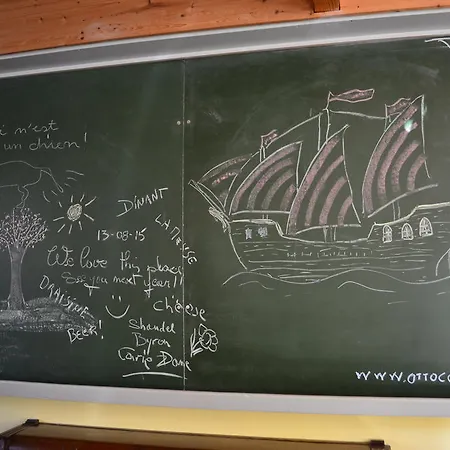 i n'est
un chien!
DINANT
13-08-15
We love this place
See you next year!!
DRAISINE
BEER!
cheese
Shandel
Byron
Carpe Dome
WWW.OTTOCO